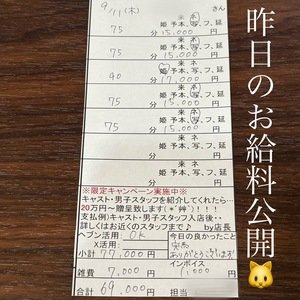 昨日のお給料公開🐱
9/11(木)
さん
来 ネ
姫 予 本、写、フ、延
75
分 15,000 円
来 ネ
姫 予 本、写、フ、延
75
分 15,000 円
来 ネ
姫 予 本、写、フ、延
40
分 17,000 円
来 ネ
姫 予 本、写、フ、延
75
分 15,000 円
来 ネ
姫 予 本、写、フ、延
75
分 15,000 円
来 ネ
姫 予 本、写、フ、延
分 円
※限定キャンペーン実施中※
キャスト・男子スタッフを紹介してくれたら…
20万円~贈呈致します(*^艸^)!!!!
支払例)キャスト・男子スタッフ入店後‥
詳しくはお近くのスタッフまで♪ by店長
ヘブン活用: OK
今日の良かったこと
X活用:
ありがとうございます!
小計 77,000 円
インボイス
雑費 7,000 円
1,000 円
合計 69,000 円
担当